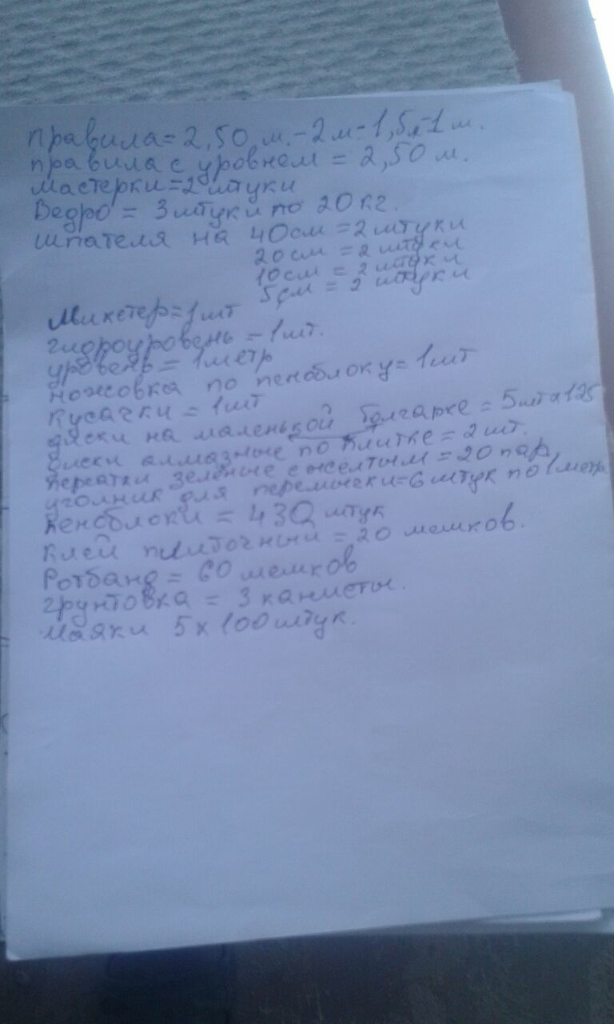 Правила=2,50 м.-2м-1,5м-1м.
правила с уровнем = 2,50 м.
мастерки=2штуки
Ведро = 3штуки по 20кг.
шпателя на 40см=2штуки
20см=2штуки
10см=2штуки
5см=2штуки
Микстер=1шт
гидроуровень-1шт.
уровень=1метр
ножовка по пеноблоку=1шт
кусачки=1шт
диски на маленькой болгарке=5шт х125
диски алмазные по плитке=2шт.
перчатки зелёные с жёлтым=20 пар
уголник для перемычки=6штук по 1метр
Пеноблоки=430 штук
Клей плиточный=20 мешков.
Ротбанд=60 мешков
грунтовка=3канисты.
маяки 5х100штук.